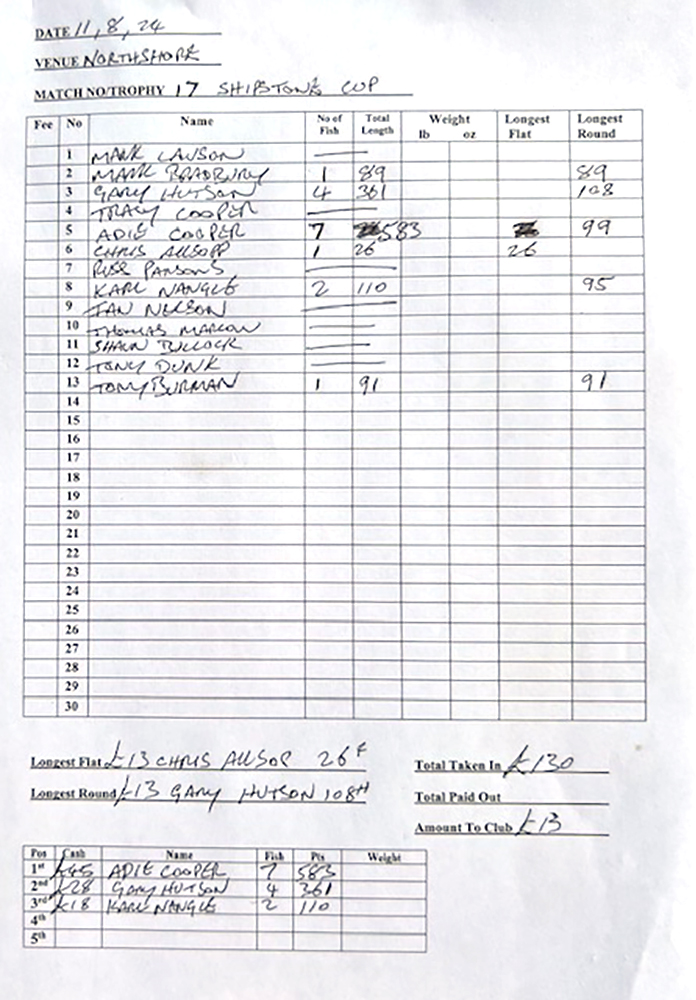 DATE 11, 8, 24
VENUE NORTHSHORE
MATCH NO/TROPHY 17 SHIPSTONE CUP
Fee No Name No of Fish Total Length Weight lb oz Longest Flat Longest Round
1 MARK LAWSON
2 MARK BRADBURY 1 89 89
3 GARY HUTSON 4 361 108
4 TRACY COOPER
5 ADIE COOPER 7 583 99
6 CHRIS ALLSOPP 1 26 26
7 ROSS PARSONS
8 KARL NANGLE 2 110 95
9 IAN NELSON
10 THOMAS MARLOW
11 SHAUN BULLOCK
12 TONY DUNK
13 TONY BURMAN 1 91 91
14
15
16
17
18
19
20
21
22
23
24
25
26
27
28
29
30
Longest Flat £13 CHRIS ALLSOP 26 F
Longest Round £13 GARY HUTSON 108 H
Total Taken In £130
Total Paid Out
Amount To Club £13
Pos Cash Name Fish Pts Weight
1st £45 ADIE COOPER 7 583
2nd £28 GARY HUTSON 4 361
3rd £18 KARL NANGLE 2 110
4th
5th